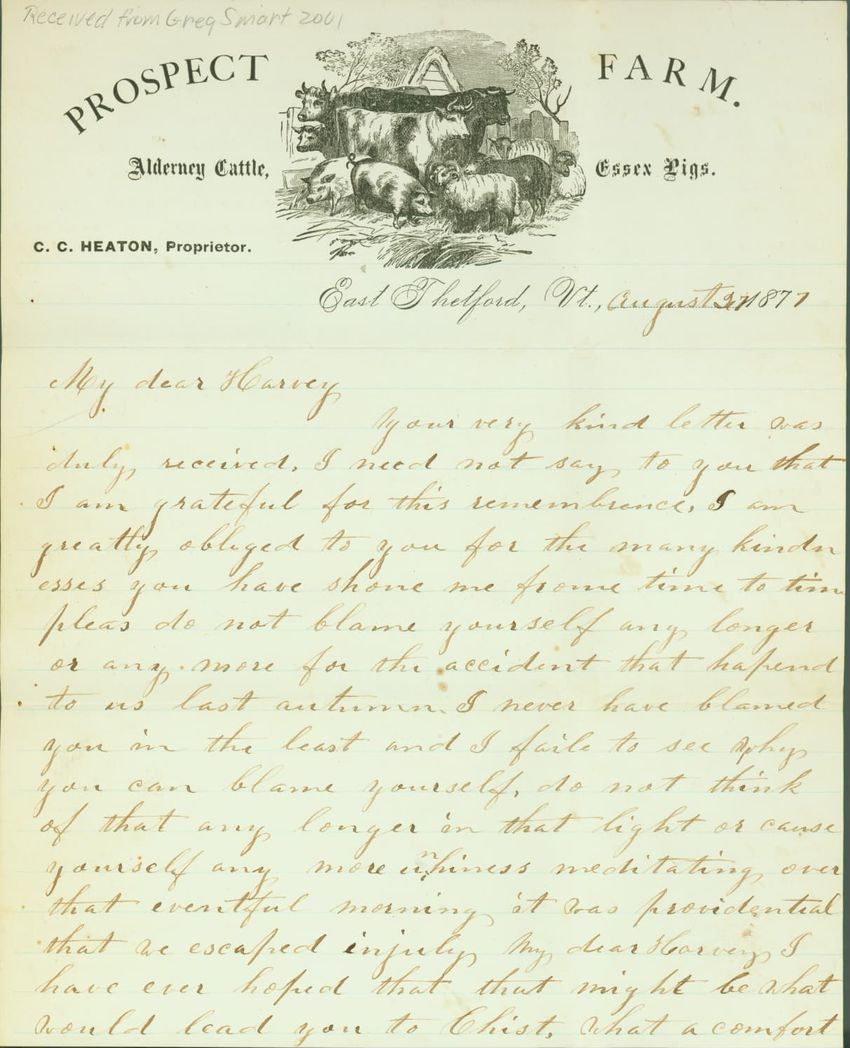 Received from Greg Smart 2001
PROSPECT FARM.
Alderney Cattle, Essex Pigs.
C. C. HEATON, Proprietor.
East Thetford, Vt., August 27 1877
My dear Harvey
Your very kind letter was
duly received, I need not say to you that
I am grateful for this remembrence, I am
greatly obliged to you for the many kindn
esses you have shone me frome time to time
pleas do not blame yourself any longer
or any more for the accident that hapend
to us last autumn. I never have blamed
you in the least and I faile to see why
you can blame yourself, do not think
of that any longer in that light or cause
yourself any more meditating over
that eventful morning it was providential
that we escaped injuly, My dear Harvey I
have ever hoped that that might be what
would lead you to Chist, what a comfort